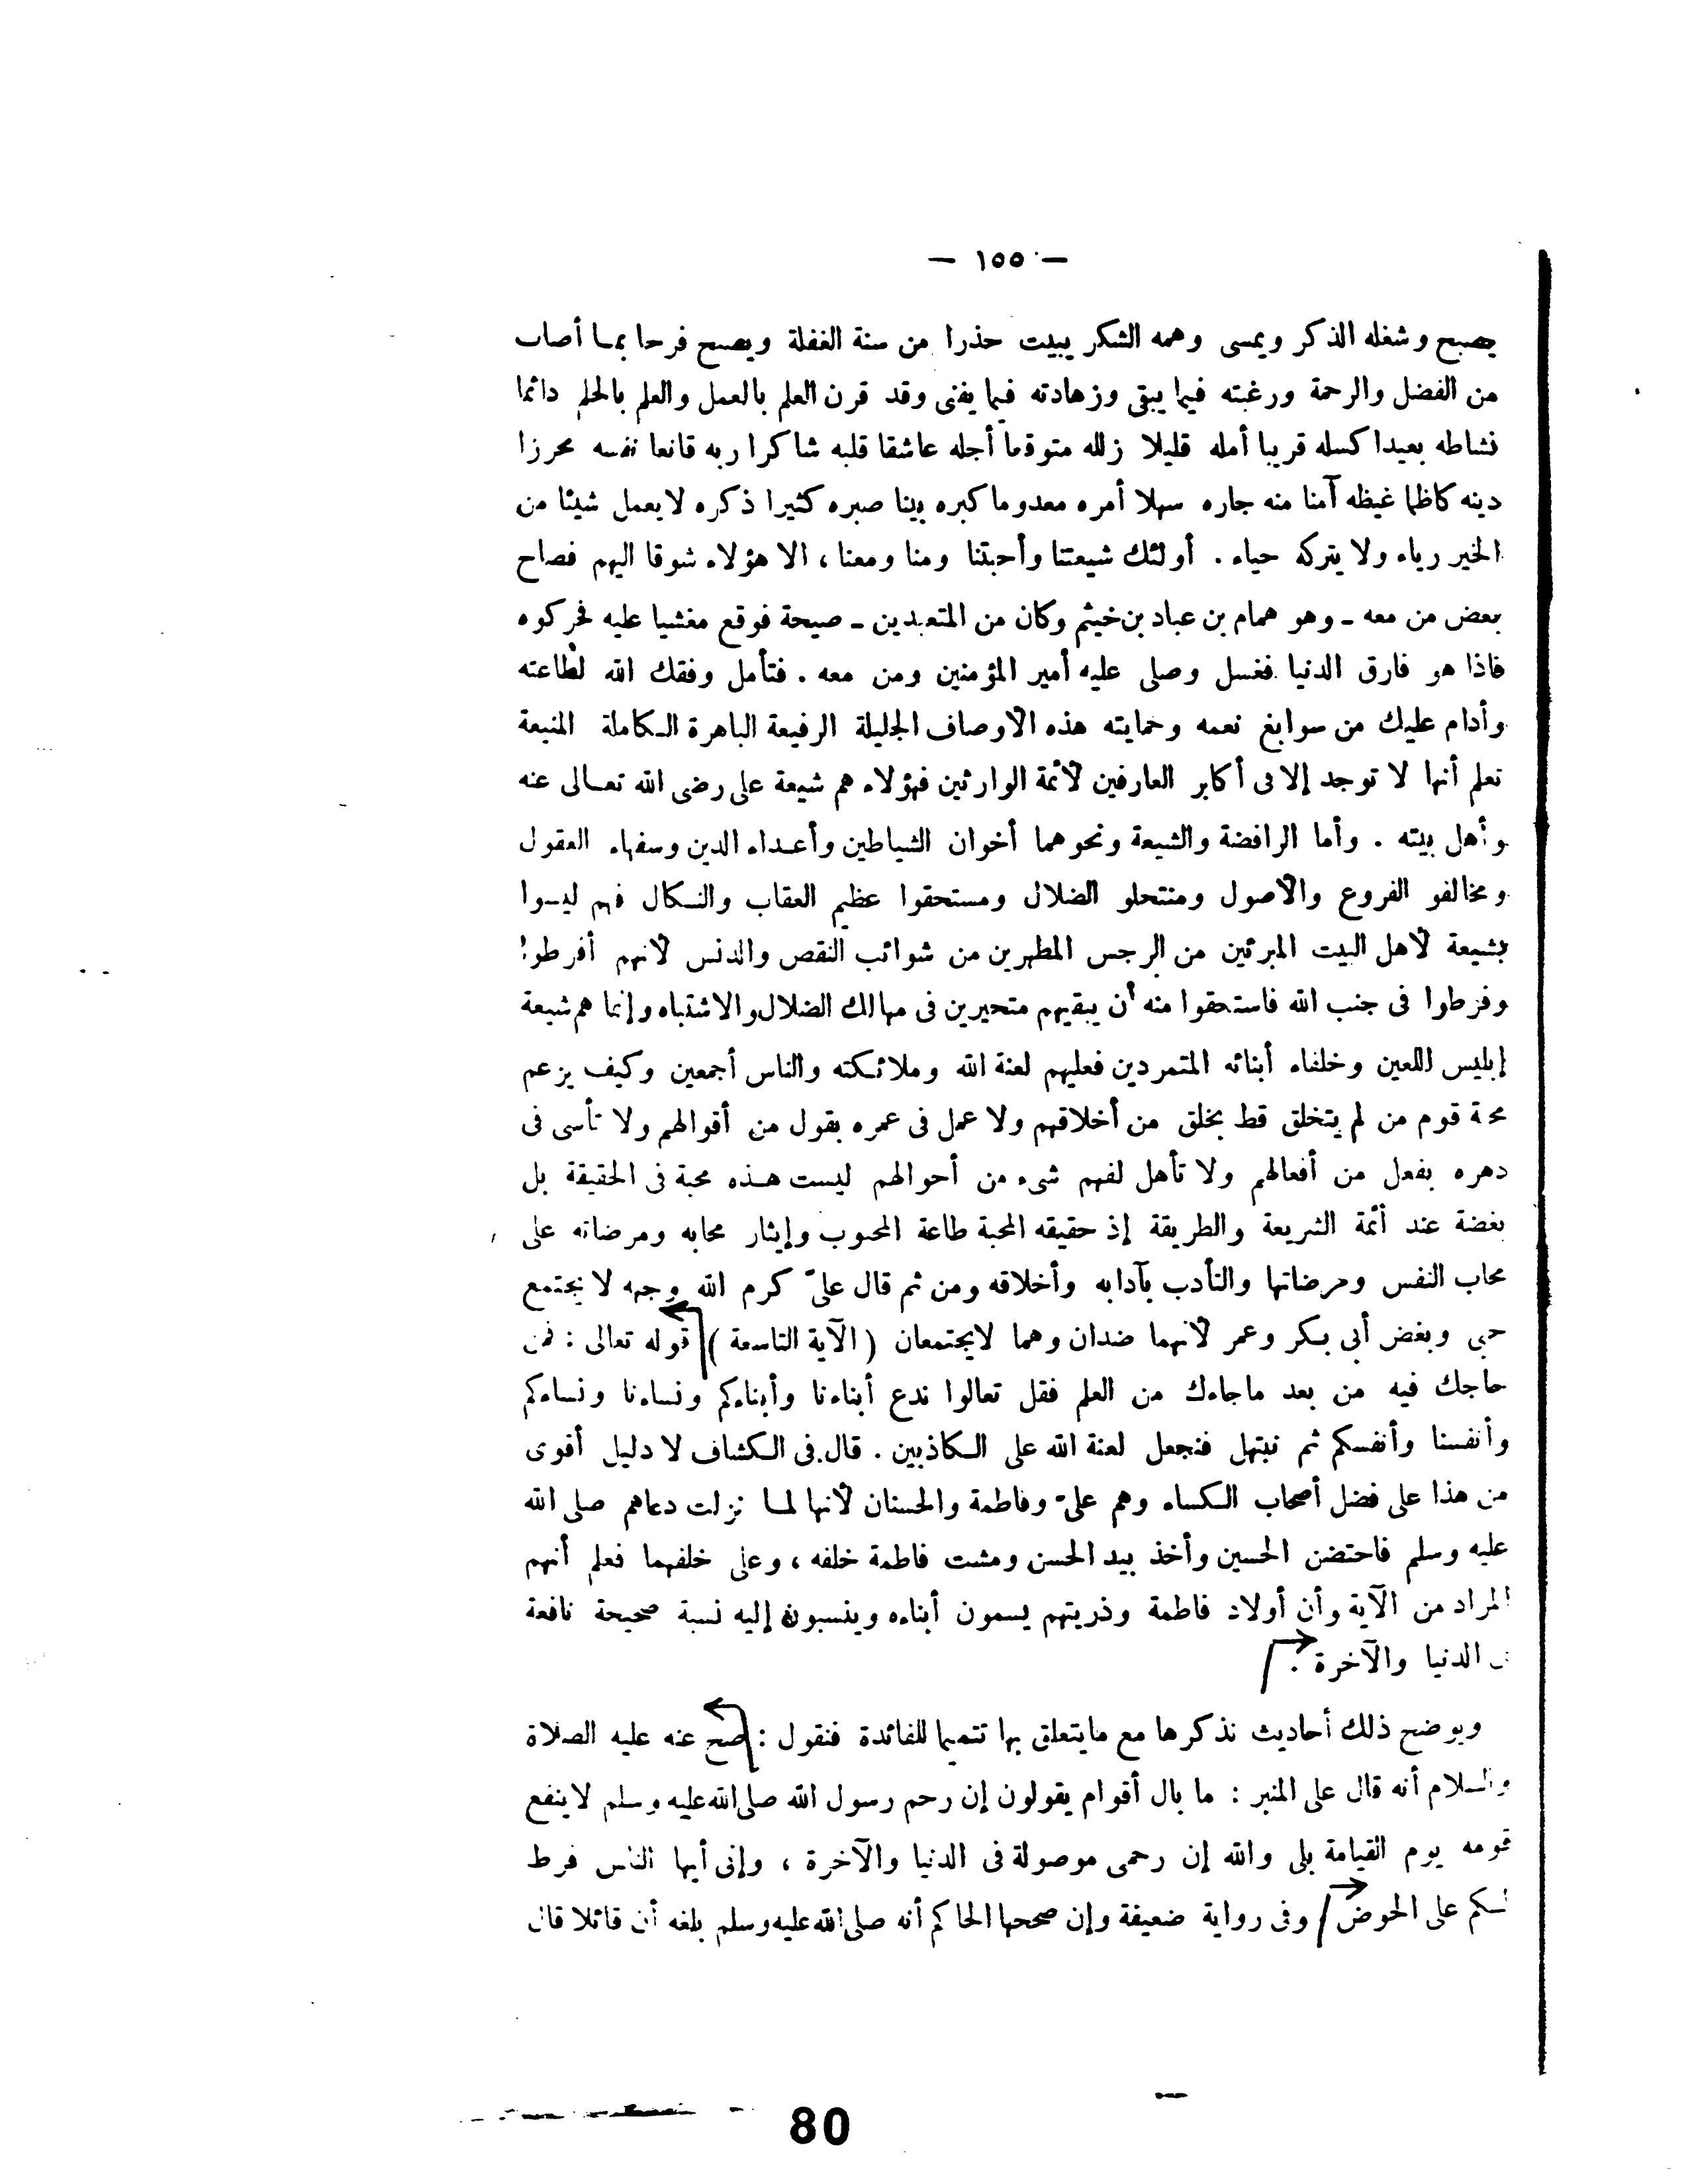 — ١٥٥ —
يصبح وشغله الذكر ويمسى وهمه الشكر يبيت حذرا من سنة الغفلة ويصبح فرحا بما أصاب
من الفضل والرحمة ورغبته فيما يبقى وزهادته فيما يفنى وقد قرن العلم بالعمل والعلم بالحلم دائما
نشاطه بعيدا كسله قريبا أمله قليلا زلله متوقعا أجله عاشقا قلبه شاكرا ربه قانعا نفسه محرزا
دينه كاظما غيظه آمنا منه جاره سهلا أمره معدوما كبره بينا صبره كثيرا ذكره لا يعمل شيئا من
الخير رياء ولا يتركه حياء . أولئك شيعتنا وأحبتنا ومنا ومعنا ، الا هؤلاء شوقا اليهم فصاح
بعض من معه ـ وهو همام بن عباد بن خيثم وكان من المتعبدين ـ صيحة فوقع مغشيا عليه فحركوه
فاذا هو فارق الدنيا فغسل وصلى عليه أمير المؤمنين ومن معه . فتأمل وفقك الله لطاعته
وأدام عليك من سوابغ نعمه وحمايته هذه الأوصاف الجليلة الرفيعة الباهرة الكاملة المنيعة
تعلم أنها لا توجد إلا فى أكابر العارفين لأئمة الوارثين فهؤلاء هم شيعة على رضى الله تعالى عنه
وأهل بيته . وأما الرافضة والشيعة ونحوهما أخوان الشياطين وأعداء الدين وسفهاء العقول
ومخالفو الفروع والأصول ومنتحلو الضلال ومستحقوا عظيم العقاب والنكال فهم ليسوا
بشيعة لأهل البيت المبرئين من الرجس المطهرين من شوائب النقص والدنس لأنهم أفرطوا
وفرطوا فى جنب الله فاستحقوا منه أن يبقيهم متحيرين فى مهالك الضلال والاشتباه وإنما هم شيعة
إبليس اللعين وخلفاء أبنائه المتمردين فعليهم لعنة الله وملائكته والناس أجمعين وكيف يزعم
محبة قوم من لم يتخلق قط بخلق من أخلاقهم ولا عمل فى عمره بقول من أقوالهم ولا تأسى فى
دهره بفعل من أفعالهم ولا تأهل لفهم شىء من أحوالهم ليست هذه محبة فى الحقيقة بل
بغضة عند أئمة الشريعة والطريقة إذ حقيقه المحبة طاعة المحبوب وإيثار محابه ومرضاته على
محاب النفس ومرضاتها والتأدب بآدابه وأخلاقه ومن ثم قال علىّ كرم الله وجهه لا يجتمع
حبى وبغض أبى بكر وعمر لأنهما ضدان وهما لا يجتمعان ( الآية التاسعة ) قوله تعالى : فمن
حاجك فيه من بعد ماجاءك من العلم فقل تعالوا ندع أبناءنا وأبناءكم ونساءنا ونساءكم
وأنفسنا وأنفسكم ثم نبتهل فنجعل لعنة الله على الكاذبين . قال فى الكشاف لا دليل أقوى
من هذا على فضل أصحاب الكساء وهم علىّ وفاطمة والحسنان لأنها لما نزلت دعاهم صلى الله
عليه وسلم فاحتضن الحسين وأخذ بيد الحسن ومشت فاطمة خلفه ، وعلى خلفهما فعلم أنهم
المراد من الآية وأن أولاد فاطمة وذريتهم يسمون أبناءه وينسبون إليه نسبة صحيحة نافعة
فى الدنيا والآخرة .
ويوضح ذلك أحاديث نذكرها مع مايتعلق بها تتميما للفائدة فنقول : صح عنه عليه الصلاة
والسلام أنه قال على المنبر : ما بال أقوام يقولون إن رحم رسول الله صلى الله عليه وسلم لا ينفع
قومه يوم القيامة بلى والله إن رحمى موصولة فى الدنيا والآخرة ، وإنى أيها الناس فرط
لكم على الحوض وفى رواية ضعيفة وإن صححها الحاكم أنه صلى الله عليه وسلم بلغه أن قائلا قال
80